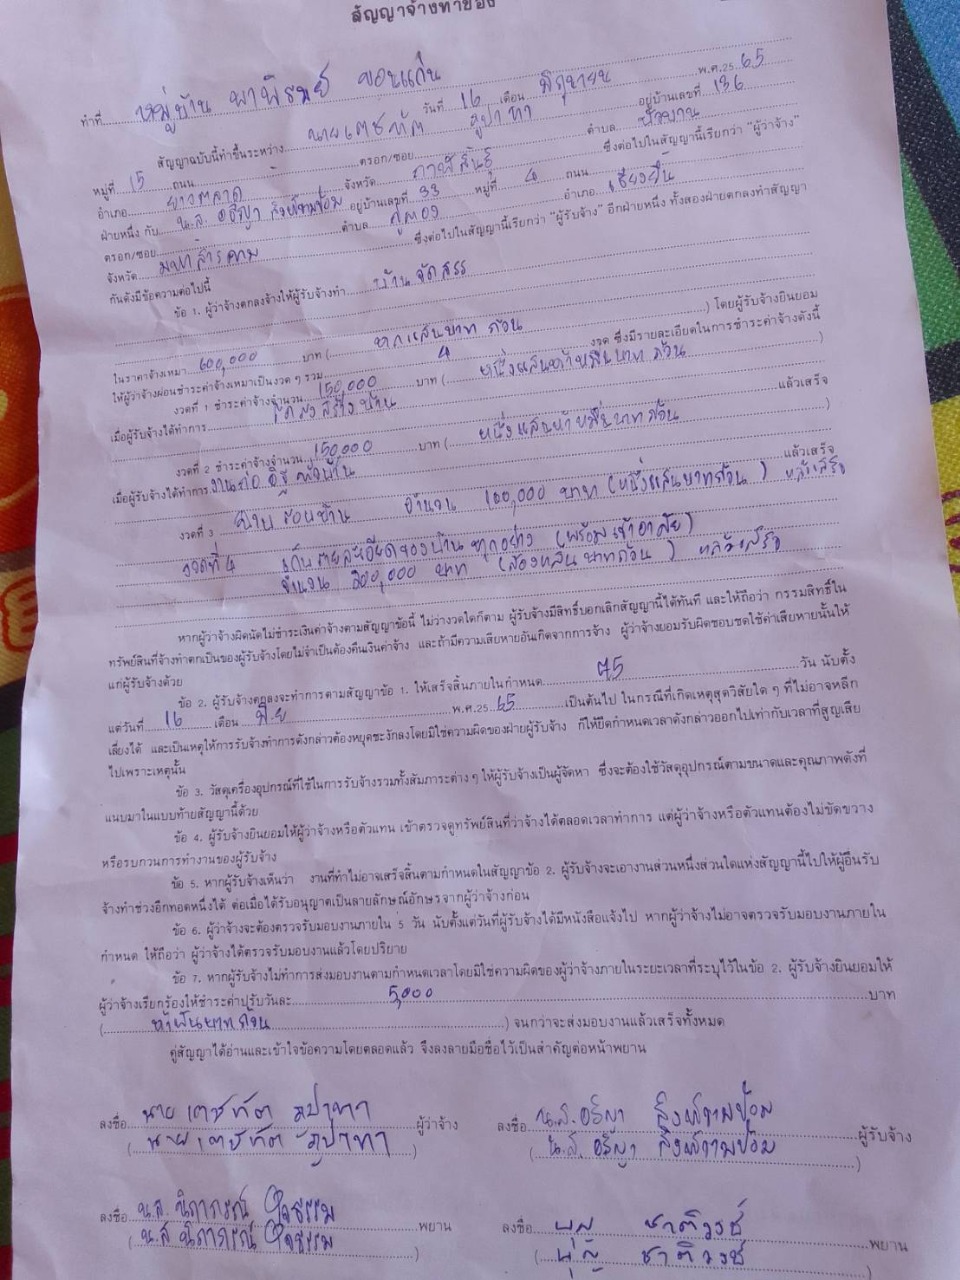 สัญญาจ้างทำของ
ทำที่ หมู่บ้าน พาพิรมย์ ขอนแก่น
วันที่ 16 เดือน มิถุนายน พ.ศ.2565
สัญญาฉบับนี้ทำขึ้นระหว่าง นายเตชทัต อยู่บ้านเลขที่ 136
หมู่ที่ 15 ถนน ตรอก/ซอย ตำบล บัวบาน
อำเภอ ยางตลาด จังหวัด กาฬสินธุ์ ซึ่งต่อไปในสัญญานี้เรียกว่า "ผู้ว่าจ้าง"
ฝ่ายหนึ่ง กับ น.ส. อริญา อยู่บ้านเลขที่ 33 หมู่ที่ 4 ถนน
ตรอก/ซอย ตำบล กู่ทอง อำเภอ เชียงยืน
จังหวัด มหาสารคาม ซึ่งต่อไปในสัญญานี้เรียกว่า "ผู้รับจ้าง" อีกฝ่ายหนึ่ง ทั้งสองฝ่ายตกลงทำสัญญา
กันดังมีข้อความต่อไปนี้
ข้อ 1. ผู้ว่าจ้างตกลงจ้างให้ผู้รับจ้างทำ บ้านจัดสรร
ในราคาจ้างเหมา 600,000 บาท ( หกแสนบาทถ้วน ) โดยผู้รับจ้างยินยอม
ให้ผู้ว่าจ้างผ่อนชำระค่าจ้างเหมาเป็นงวด ๆ รวม 4 งวด ซึ่งมีรายละเอียดในการชำระค่าจ้างดังนี้
งวดที่ 1 ชำระค่าจ้างจำนวน 150,000 บาท ( หนึ่งแสนห้าหมื่นบาทถ้วน )
เมื่อผู้รับจ้างได้ทำการ โครงสร้างบ้าน แล้วเสร็จ
งวดที่ 2 ชำระค่าจ้างจำนวน 150,000 บาท ( หนึ่งแสนห้าหมื่นบาทถ้วน )
เมื่อผู้รับจ้างได้ทำการ งานก่ออิฐ ตัวบ้าน แล้วเสร็จ
งวดที่ 3 บ้าน จำนวน 100,000 บาท (หนึ่งแสนบาทถ้วน) หลังเสร็จ
งวดที่ 4 เก็บรายละเอียดของบ้านทุกอย่าง (พร้อมเข้าอาศัย)
จำนวน 200,000 บาท (สองแสนบาทถ้วน) หลังเสร็จ
หากผู้ว่าจ้างผิดนัดไม่ชำระเงินค่าจ้างตามสัญญาข้อนี้ ไม่ว่างวดใดก็ตาม ผู้รับจ้างมีสิทธิ์บอกเลิกสัญญานี้ได้ทันที และให้ถือว่า กรรมสิทธิ์ใน
ทรัพย์สินที่จ้างทำตกเป็นของผู้รับจ้างโดยไม่จำเป็นต้องคืนเงินค่าจ้าง และถ้ามีความเสียหายอันเกิดจากการจ้าง ผู้ว่าจ้างยอมรับผิดชอบชดใช้ค่าเสียหายนั้นให้
แก่ผู้รับจ้างด้วย
ข้อ 2. ผู้รับจ้างตกลงจะทำการตามสัญญาข้อ 1. ให้เสร็จสิ้นภายในกำหนด 75 วัน นับตั้ง
แต่วันที่ 16 เดือน มิ.ย พ.ศ.2565 เป็นต้นไป ในกรณีที่เกิดเหตุสุดวิสัยใด ๆ ที่ไม่อาจหลีก
เลี่ยงได้ และเป็นเหตุให้การรับจ้างทำการดังกล่าวต้องหยุดชะงักลงโดยมิใช่ความผิดของฝ่ายผู้รับจ้าง ก็ให้ยืดกำหนดเวลาดังกล่าวออกไปเท่ากับเวลาที่สูญเสีย
ไปเพราะเหตุนั้น
ข้อ 3. วัสดุเครื่องอุปกรณ์ที่ใช้ในการรับจ้างรวมทั้งสัมภาระต่าง ๆ ให้ผู้รับจ้างเป็นผู้จัดหา ซึ่งจะต้องใช้วัสดุอุปกรณ์ตามขนาดและคุณภาพดังที่
แนบมาในแบบท้ายสัญญานี้ด้วย
ข้อ 4. ผู้รับจ้างยินยอมให้ผู้ว่าจ้างหรือตัวแทน เข้าตรวจดูทรัพย์สินที่ว่าจ้างได้ตลอดเวลาทำการ แต่ผู้ว่าจ้างหรือตัวแทนต้องไม่ขัดขวาง
หรือรบกวนการทำงานของผู้รับจ้าง
ข้อ 5. หากผู้รับจ้างเห็นว่า งานที่ทำไม่อาจเสร็จสิ้นตามกำหนดในสัญญาข้อ 2. ผู้รับจ้างจะเอางานส่วนหนึ่งส่วนใดแห่งสัญญานี้ไปให้ผู้อื่นรับ
จ้างทำช่วงอีกทอดหนึ่งได้ ต่อเมื่อได้รับอนุญาตเป็นลายลักษณ์อักษรจากผู้ว่าจ้างก่อน
ข้อ 6. ผู้ว่าจ้างจะต้องตรวจรับมอบงานภายใน 5 วัน นับตั้งแต่วันที่ผู้รับจ้างได้มีหนังสือแจ้งไป หากผู้ว่าจ้างไม่อาจตรวจรับมอบงานภายใน
กำหนด ให้ถือว่า ผู้ว่าจ้างได้ตรวจรับมอบงานแล้วโดยปริยาย
ข้อ 7. หากผู้รับจ้างไม่ทำการส่งมอบงานตามกำหนดเวลาโดยมิใช่ความผิดของผู้ว่าจ้างภายในระยะเวลาที่ระบุไว้ในข้อ 2. ผู้รับจ้างยินยอมให้
ผู้ว่าจ้างเรียกร้องให้ชำระค่าปรับวันละ 5,000 บาท
( ห้าพันบาทถ้วน ) จนกว่าจะส่งมอบงานแล้วเสร็จทั้งหมด
คู่สัญญาได้อ่านและเข้าใจข้อความโดยตลอดแล้ว จึงลงลายมือชื่อไว้เป็นสำคัญต่อหน้าพยาน
ลงชื่อ นาย เตชทัต ภูปาทา ผู้ว่าจ้าง
( นาย เตชทัต ภูปาทา )
ลงชื่อ น.ส. อริญา ผู้รับจ้าง
( น.ส. อริญา )
ลงชื่อ น.ส. นิภาภรณ์ ใจธรรม พยาน
( น.ส นิภาภรณ์ ใจธรรม )
ลงชื่อ ชาติวงษ์ พยาน
( ชาติวงษ์ )